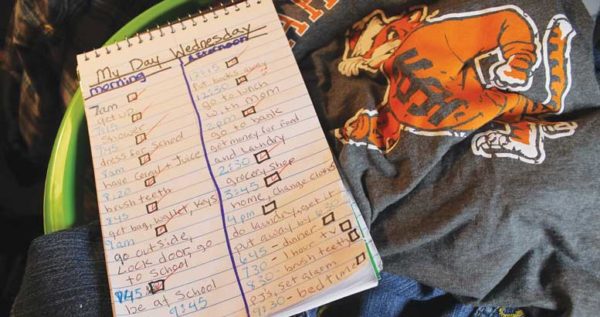 My Day Wednesday
morning
7am
get up
7:15
shower
7:45
dress for school
8am
have cereal + Juice
8:20
brush teeth
8:45
get bag, wallet, keys
9am
go outside,
Lock door, go
to school
be at School
9:45
Afternoon
12:15
Put books away
12:30
go to lunch
with mom
2pm
go to bank
get money for food
and laundry
2:30
grocery shop
3:45
home, change clothes
4pm
do laundry, get it
put away by 6:00
645 - dinner
730 - 1 hour tv
830 - brush teeth
PJs, set alarm
9:30 - bedtime